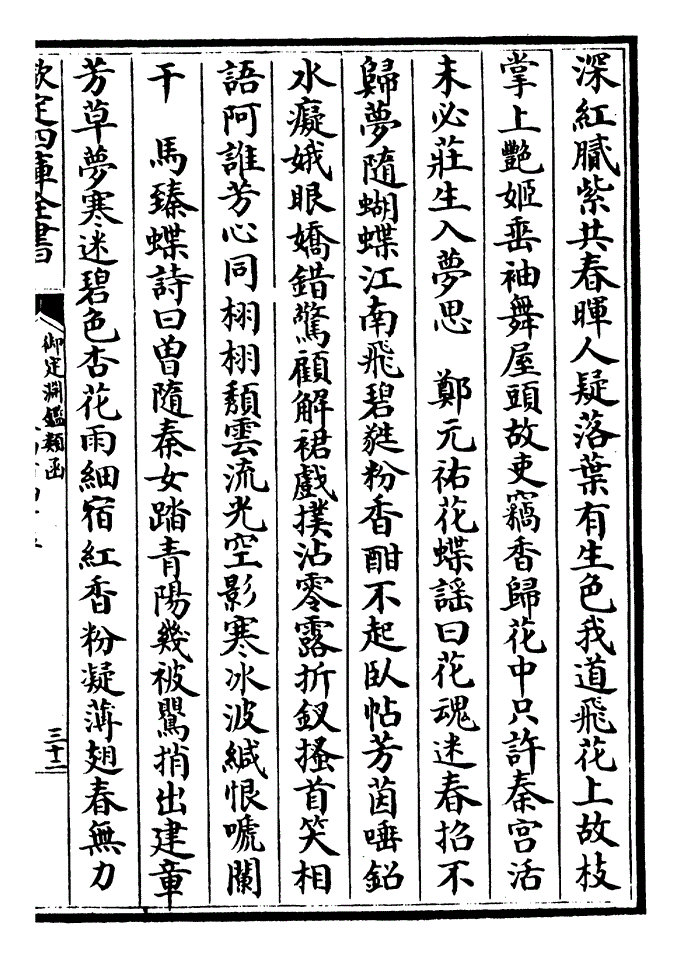 深紅膩紫共春暉人疑落葉有生色我道飛花上故枝
掌上艶姬垂袖舞屋頭故吏竊香歸花中只許秦宫活
未必莊生入夢思　鄭元祐花蝶謡曰花魂迷春招不
歸夢隨蝴蝶江南飛碧㲯粉香酣不起臥帖芳茵唾鉛
水癡娥眼嬌錯驚顧解裙戲撲沾零露折釵搔首笑相
語阿誰芳心同栩栩頽雲流光空影寒冰波緘恨嗁闌
干　馬臻蝶詩曰曽隨秦女踏青陽幾被鶯捎出建章
芳草夢寒迷碧色杏花雨細宿紅香粉凝薄翅春無力
欽定四庫全書
御定淵鑑類函
三十二